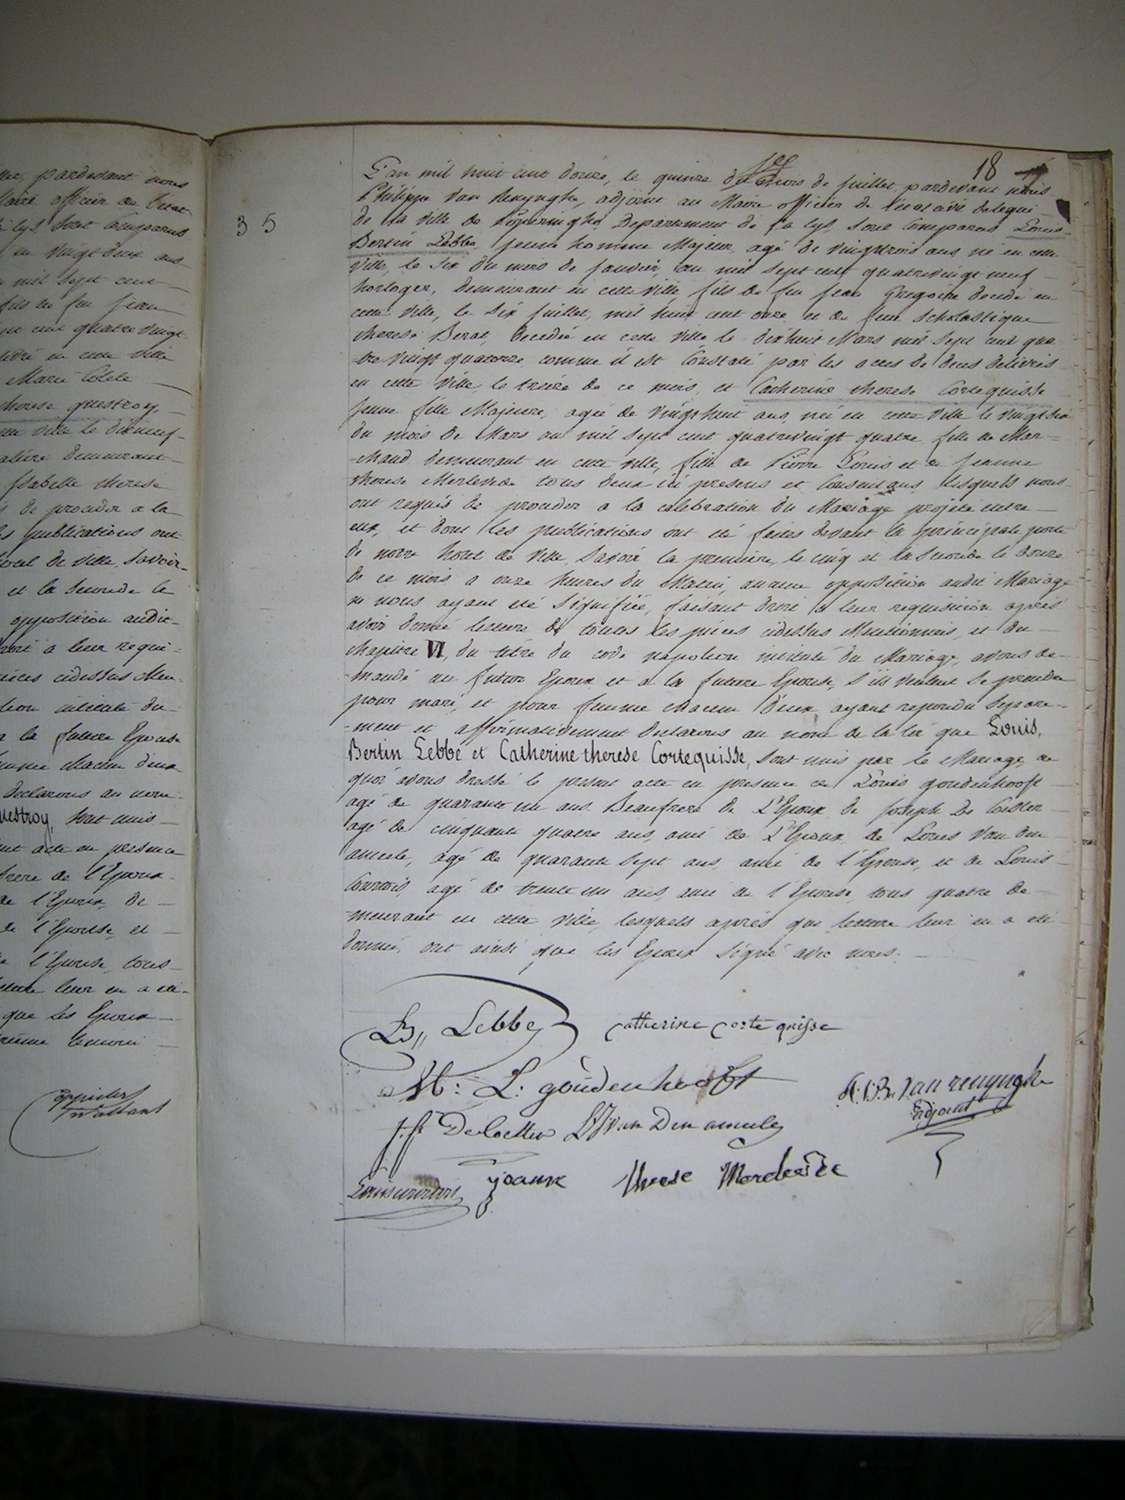 pardevant nous
Maire officier de l'etat
Lys sont Comparus
vingt deux ans
mil sept cent
fils de feu jean
cent quatre vingt
en cette ville
Marie
therese questroy,
ville le dixneuf
demeurant
Isabelle therese
de proceder a la
publications ont
hotel de ville, Savoir
et la seconde le
opposition audit
droit a leur requi-
pièces cidessus Men-
intitulé du
la future Epouse
chacun deux
declarons au nom
questroy, sont unis
acte en presence
frere de l'Epoux
de l'Epoux, de
de l'Epouse, et
l'Epouse, tous
lecture leur en a eté
que les Epoux
18
35
L'an mil huit cent douze, le quinze du mois de juillet pardevant nous
Philippe Van Renynghe, adjoint au Maire officier de l'etat civil delegué
de la ville de Poperinghe, Departement de la Lys, sont Comparus Louis
Bertin Lebbe, jeune homme Majeur, agé de vingttrois ans né en cette
ville, le six du mois de janvier, an mil sept cent quatrevingt neuf
horloger, demeurant en cette ville, fils de feu jean Gregoire decedé en
cette ville, le six juillet, mil huit cent onze et de feue Scholastique
therese Berat, decedée en cette ville le dixhuit Mars mil sept cent qua
tre vingt quatorze comme il est Constaté par les actes de deces delivrés
en cette ville le treize de ce mois, et Catherine therese Cortequisse
jeune fille Majeure, agée de vingthuit ans, née en cette ville le vingt
du mois de Mars an mil sept cent quatrevingt quatre fille de Mar-
-chand demeurant en cette ville, fille de Pierre Louis et de Jeanne
therese Merlevede tous deux ici presens et Consentans lesquels nous
ont requis de proceder a la celebration du Mariage projeté entre
eux, et dont les publications ont eté faites devant la principale porte
de notre hotel de ville Savoir la premiere, le cinq et la seconde le douze
de ce mois a onze heures du Matin, aucune opposition audit Mariage
ne nous ayant eté signifiée, faisant droit a leur requisition apres
avoir donné lecture de toutes les pièces cidessus Mentionnées, et du
chapitre VI, du titre du code napoleon intitulé du Mariage, avons de-
-mandé au futur Epoux et a la future Epouse, s'ils veulent se prendre
pour mari, et pour femme chacun d'eux ayant repondu separe-
-ment et affirmativement declarons au nom de la loi que Louis,
Bertin Lebbé et Catherine therese Cortequisse, sont unis par le Mariage, de
quoi avons dressé le present acte en presence de Louis goudenhooft
agé de quarante un ans Beaufrere de l'Epoux de Joseph De Coster
agé de cinquante quatre ans, ami de l'Epoux de Louis Van den
ameele, agé de quarante sept ans, ami de l'Epouse, et de Louis
Courtois, agé de trente un ans, ami de l'Epouse, tous quatre de-
-meurant en cette ville, lesquels après que lecture leur en a eté
donnée, ont ainsi que les Epoux signé avec nous.
B,, Lebbe catherine corte quisse
M: L: goudenhooft
P. B. Van renynghe
adjoint
Van Den ameele
Louis courtois joanne therese Merlevede